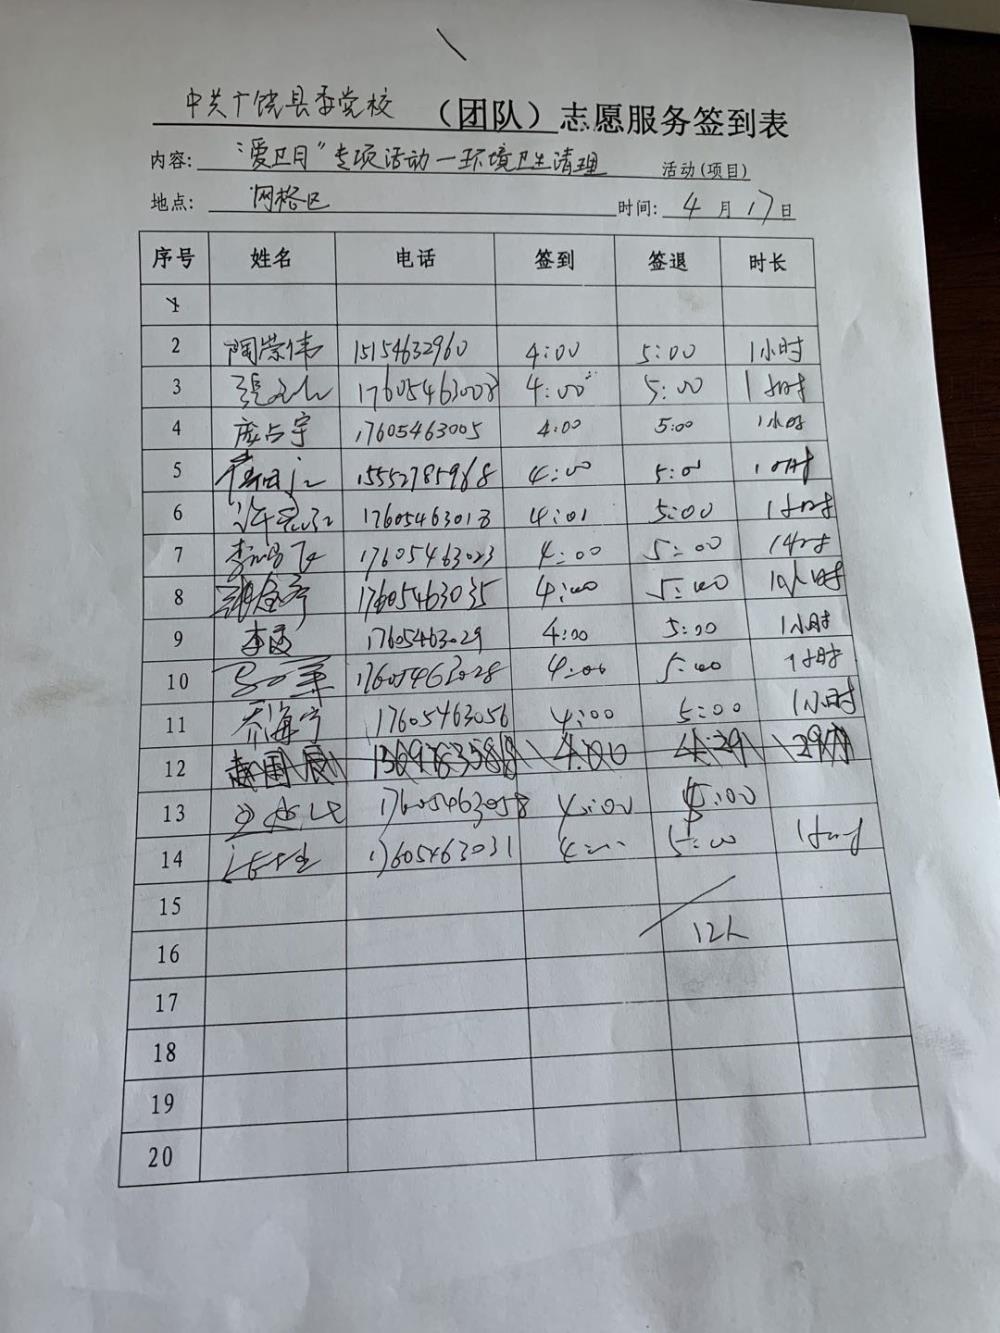 中共广饶县委党校（团队）志愿服务签到表
内容: "爱卫月"专项活动—环境卫生清理 活动(项目)
地点: 网格区 时间: 4月17日
序号 姓名 电话 签到 签退 时长
1
2 陶崇伟 15154632960 4:00 5:00 1小时
3 17605463008 4:00 5:00 1小时
4 庞占宇 17605463005 4:00 5:00 1小时
5 15552785968 4:00 5:01 1小时
6 17605463018 4:01 5:00 1小时
7 17605463023 4:00 5:00 1小时
8 17605463035 4:00 5:00 1小时
9 17605463029 4:00 5:00 1小时
10 17605463028 4:00 5:00 1小时
11 乔海宁 17605463056 4:00 5:00 1小时
12 4:00 4:29
13 17605463058 4:00 5:00
14 17605463031 4:00 5:00 1小时
15
16 12人
17
18
19
20